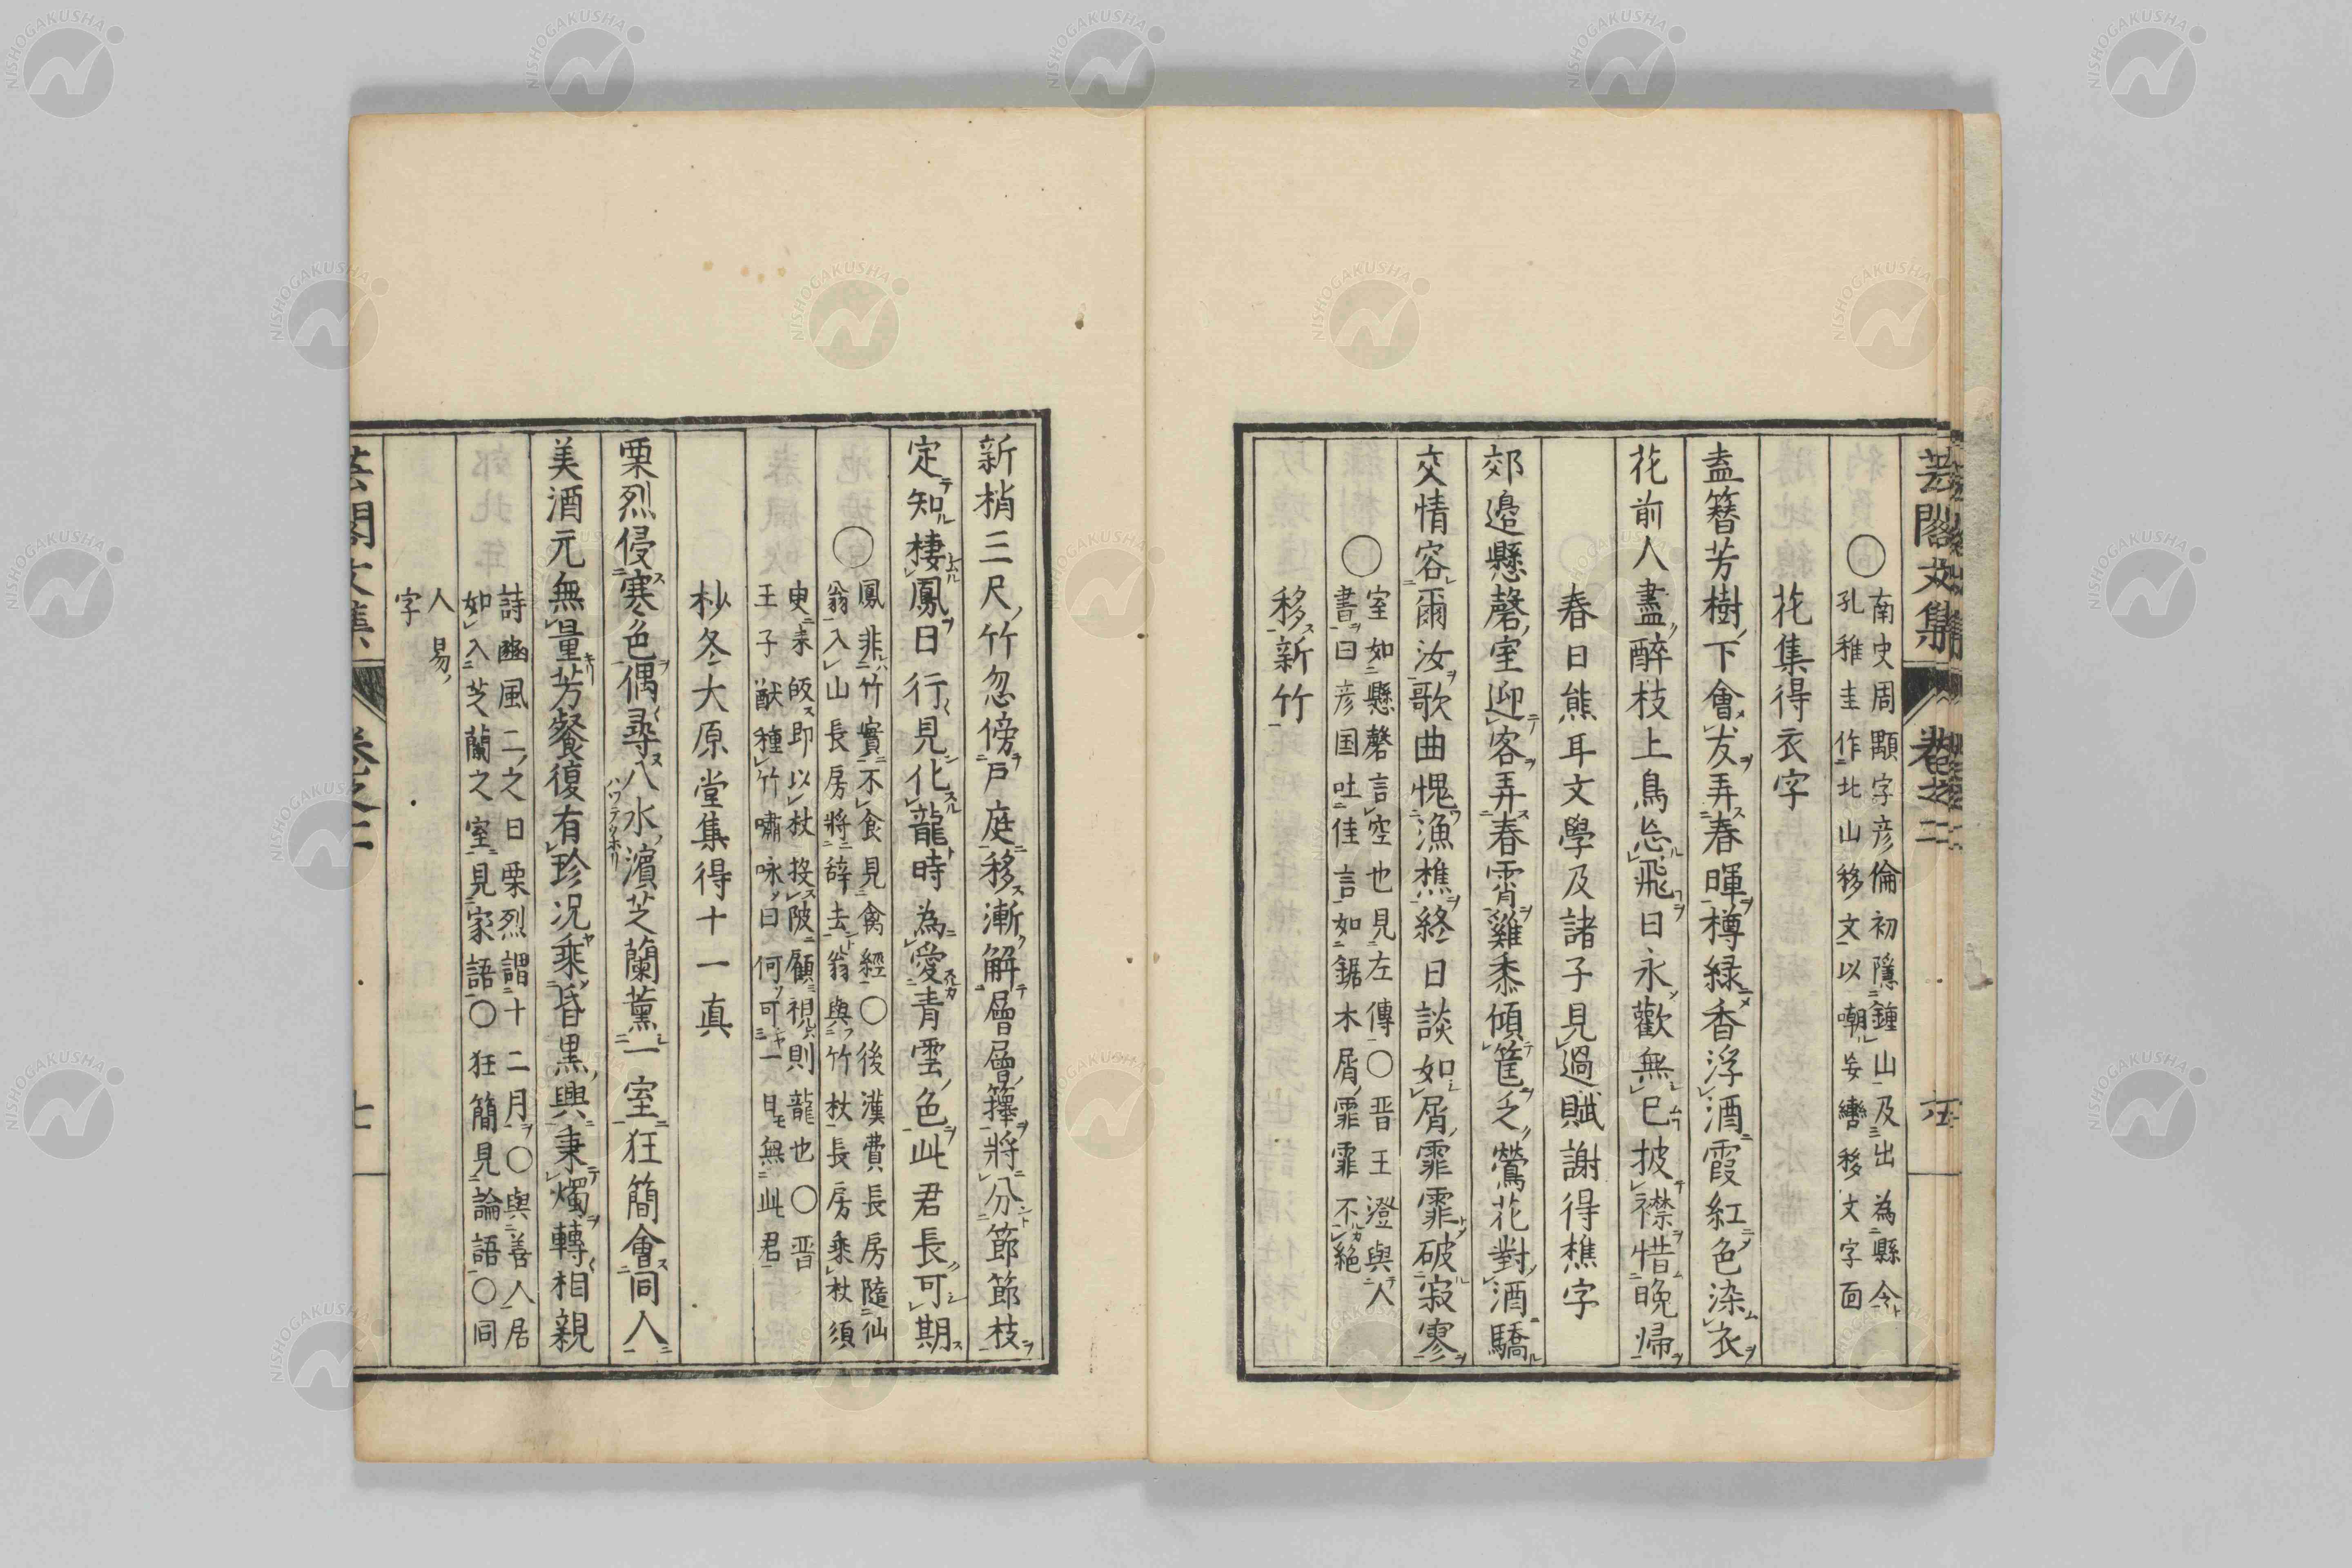 芸閣文集 卷之二
○南史周顒字彦倫初隱鍾山及出為縣令
孔稚圭作北山移文以嘲
移文字面
花集得衣字
盍簪芳樹下會友弄春暉樽緑香浮酒霞紅色染衣
花前人盡醉枝上鳥忘飛日永歡無已披襟惜晩帰
春日熊耳文學及諸子見過賦謝得樵字
郊邉懸磬室迎客弄春霄雞黍傾筐乏鶯花對酒驕
交情容爾汝歌曲愧漁樵終日談如屑霏霏破寂寥
○室如懸磬言空也見左傳○晋王澄與人
書曰彦国吐佳言如鋸木屑霏霏不絕
移新竹
新梢三尺竹忽傍戸庭移漸解層層籜將分節節枝
定知棲鳳日行見化龍時為愛青雲色此君長可期
○鳳非竹實不食見禽經○後漢費長房隨仙
翁入山長房將辞去翁與竹杖長房乘杖須
臾来皈即以杖投陂顧視則龍也○晋
王子猷種竹嘯咏曰何可一日無此君
杪冬大原堂集得十一真
栗烈侵寒色偶尋八水濱芝蘭薫一室狂簡會同人
ハツテウホリ
美酒元無量芳餐復有珍況乘昏黒興秉燭轉相親
詩豳風二之日栗烈謂十二月○與善人居
如入芝蘭之室見家語○狂簡見論語○同
人易
字
芸閣文集 卷之二
NISHOGAKUSHA